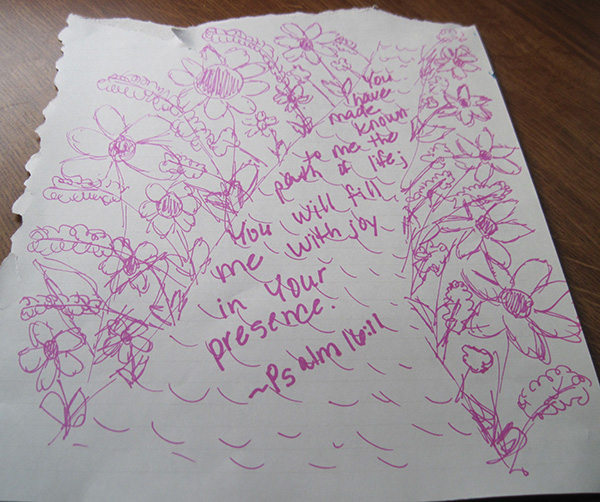 You
have
made
known
to me the
path of life;
You will fill
me with joy
in Your
presence.
~Psalm 16:11